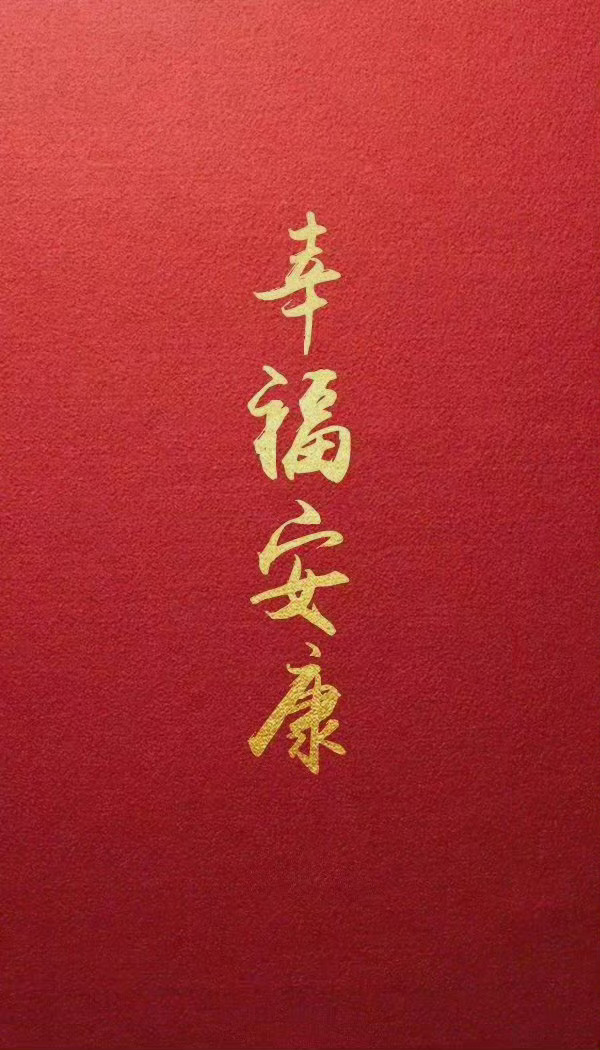 幸福安康